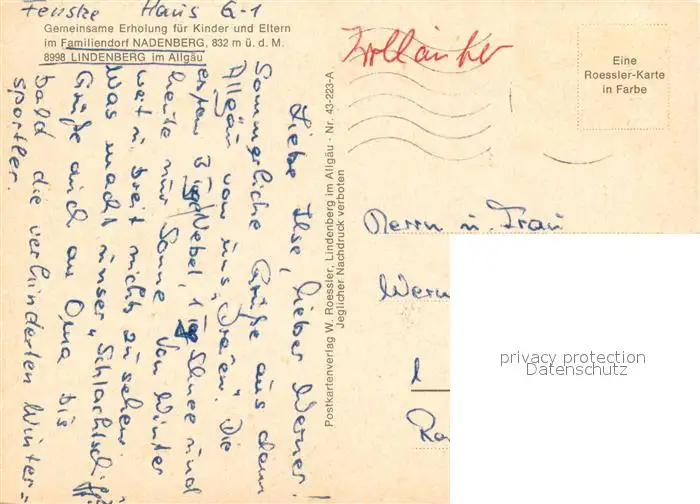 Fenske Haus G-1
Gemeinsame Erholung für Kinder und Eltern
im Familiendorf NADENBERG, 832 m ü. d. M.
8998 LINDENBERG im Allgäu
Liebe Ilse, lieber Werner!
Sommerliche Grüße aus dem
Allgäu von uns "Dreien". Die
ersten 3 Tage Nebel, 1 Tag Schnee und
heute nur Sonne. Von Winter
weit u. breit nichts zu sehen.
Was macht unser "Schlachtschiff"
Grüße auch an Oma bis
bald die verhinderten Winter=
sportler.
Postkartenverlag W. Roessler, Lindenberg im Allgäu · Nr. 43-223-A
Jeglicher Nachdruck verboten
Eine
Roessler-Karte
in Farbe
Herrn u. Frau
Wern
1
privacy protection
Datenschutz